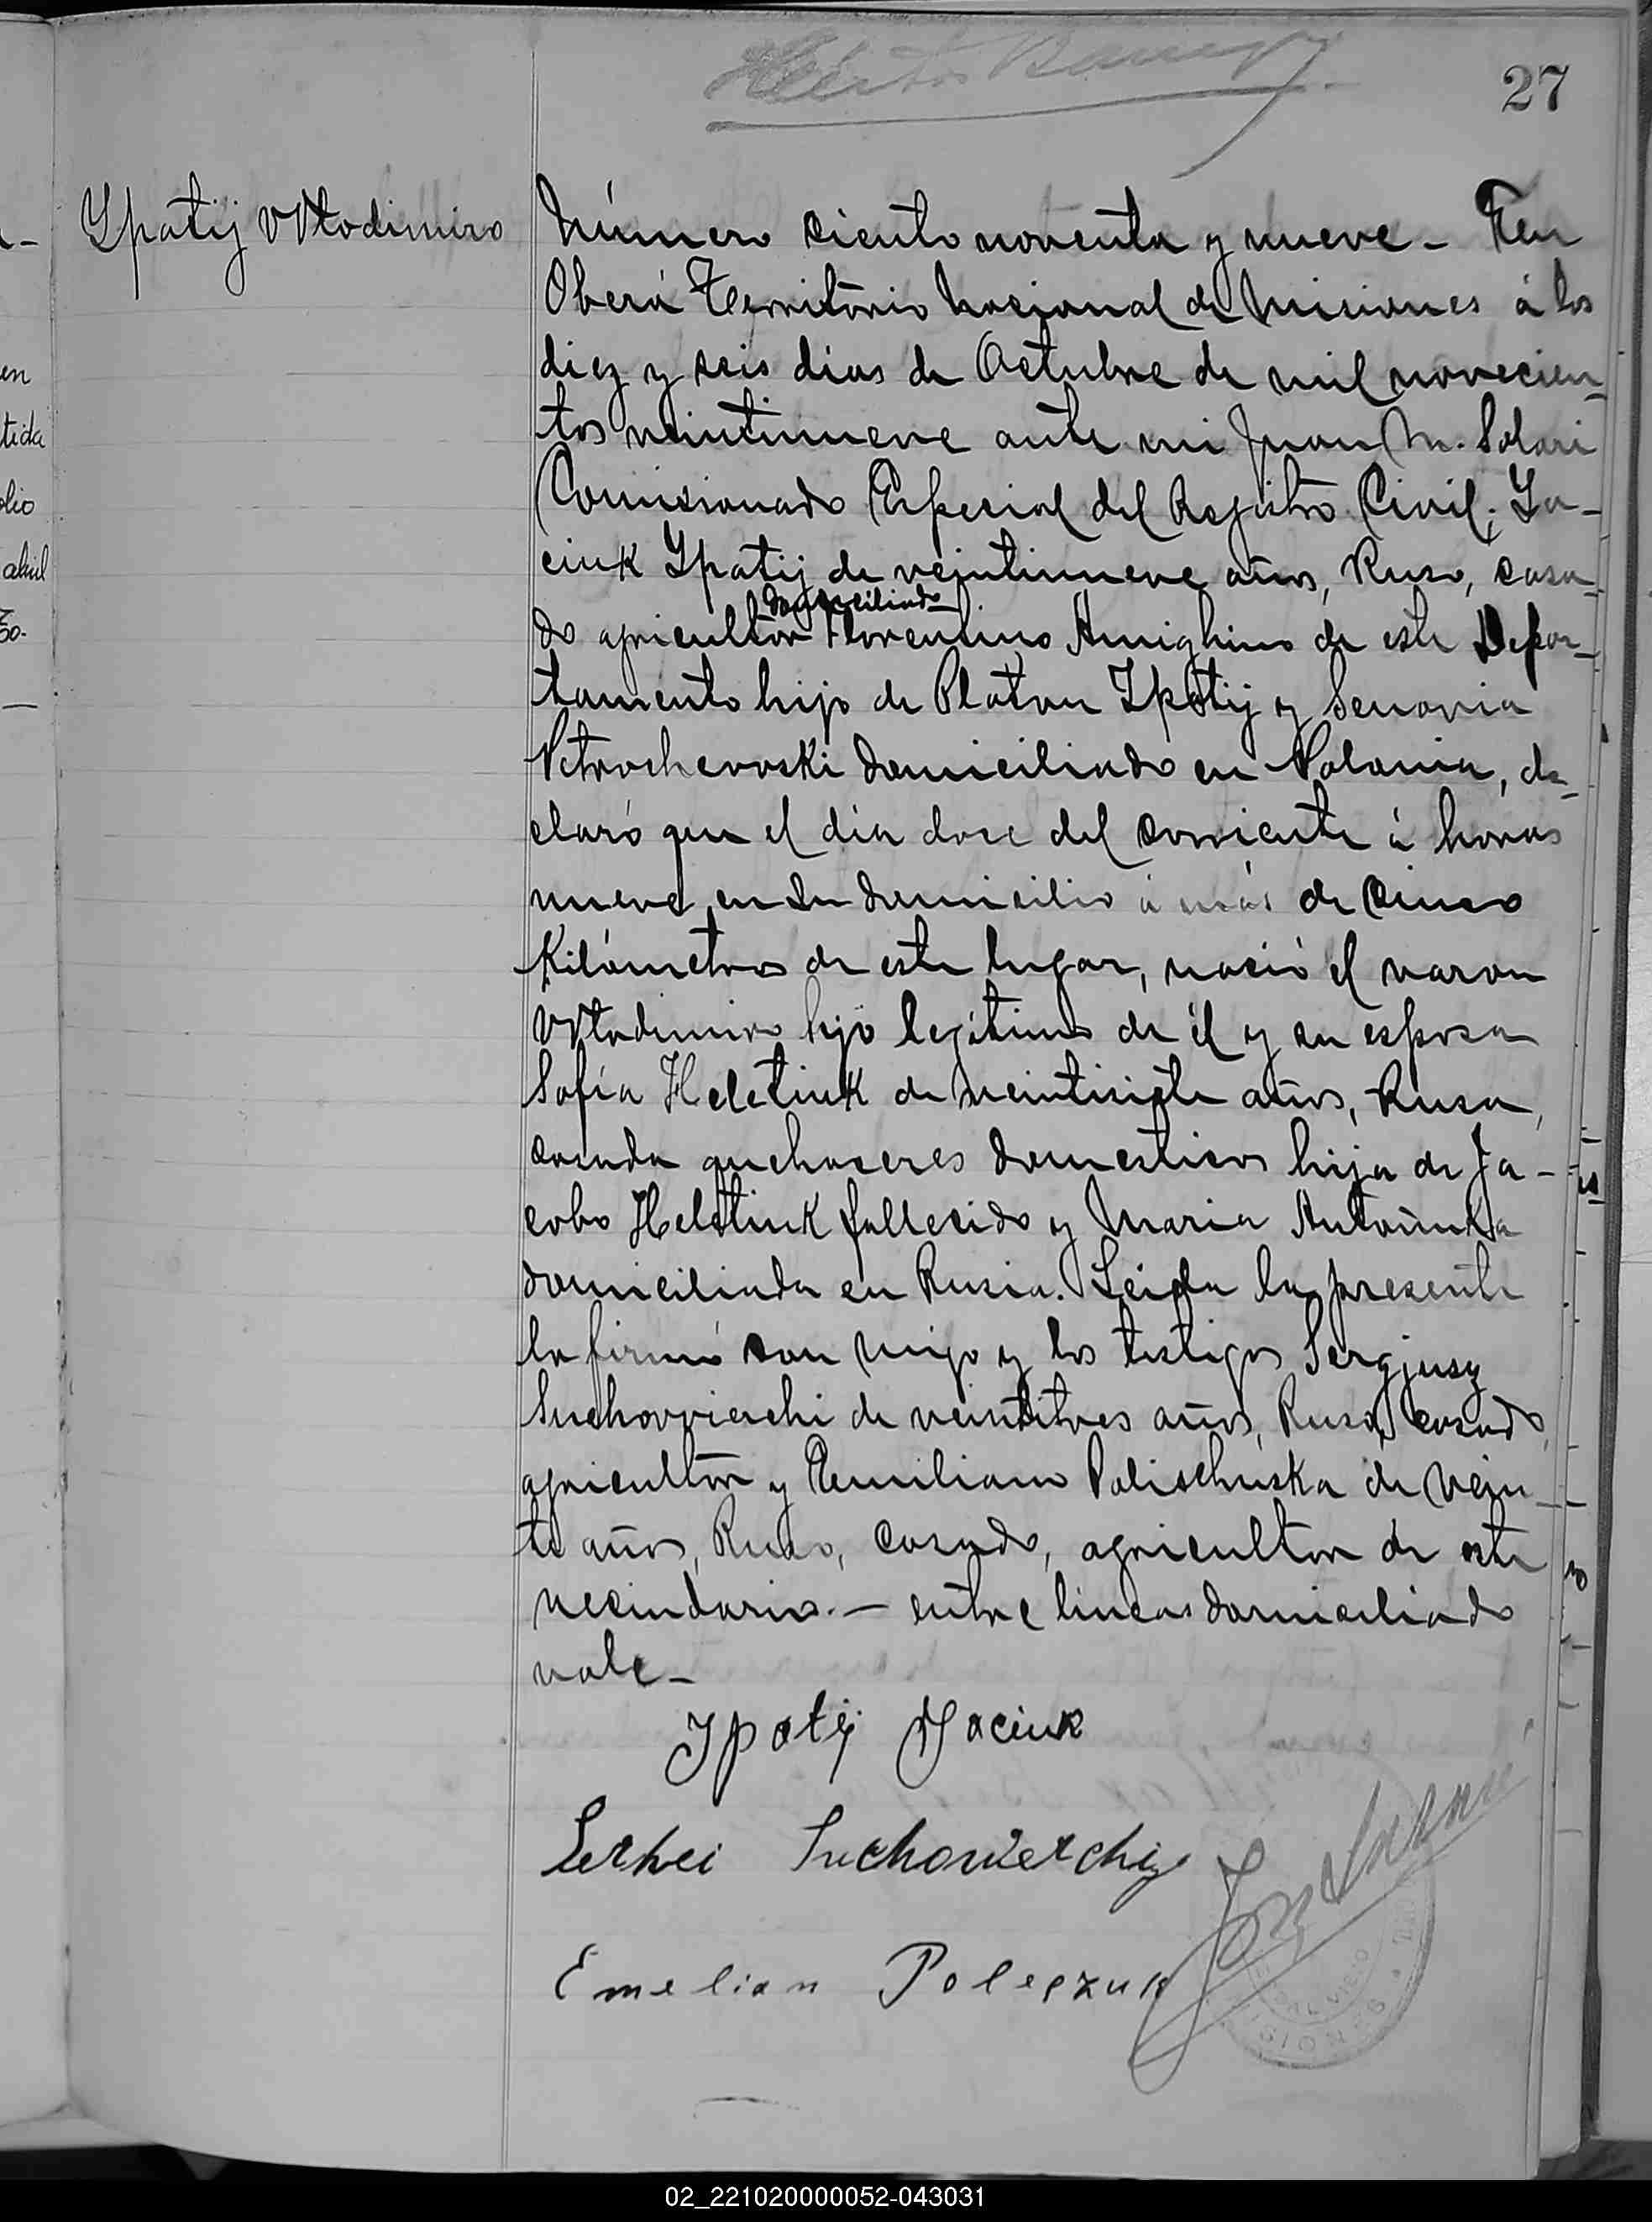 27
Ypatij Wlodimiro
Número ciento noventa y nueve - En
Oberá Territorio Nacional de Misiones á los
diez y seis dias de Octubre de mil novecien_
tos veintinueve ante mi Juan M. Solari
Comisionado Especial del Registro Civil; Ya-
ciuk Ypatij de veintinueve años, Ruso, casa_
domiciliado
do agricultor Florentino Amighino de este Depar_
tamento hijo de Platon Ypatij y Senovia
Petrochevoski domiciliado en Polonia, de_
claró que el dia doce del corriente á horas
nueve en su domicilio á más de cinco
Kilómetros de este lugar, nació el varon
Wlodimiro hijo legitimo de él y su esposa
Sofia Helctiuk de veintisiete años, Rusa,
casada quehaceres domesticos hija de Ja-
cobo Helctiuk fallecido y Maria Antoniuka
domiciliada en Rusia. Leida la presente
la firmó con migo y los testigos Sergjusz
Suchovvierchi de veintitres años, Ruso, casado,
agricultor y Emiliano Polischuska de vein_
te años, Ruso, casado, agricultor de este
vecindario.- entre lineas domiciliado
vale-
Ypatij Jaciuk
Serhei Suchowierchij
Emelian Poleszuk
02_221020000052-043031